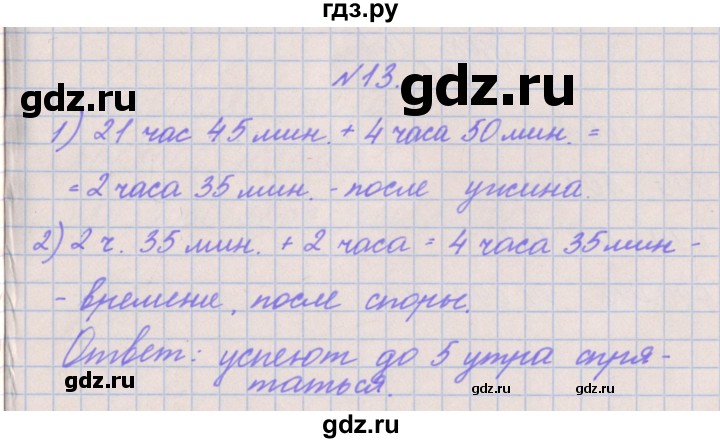 гдз.ру
№13.
gdz.ru gdz.ru
1) 21 час 45 мин. + 4 часа 50 мин. =
= 2 часа 35 мин. - после ужина.
2) 2 ч. 35 мин. + 2 часа = 4 часа 35 мин -
- времене, после споры.
Ответ: успеют до 5 утра спря-
таться.
gdz.ru gdz.ru gdz.ru
gdz.ru